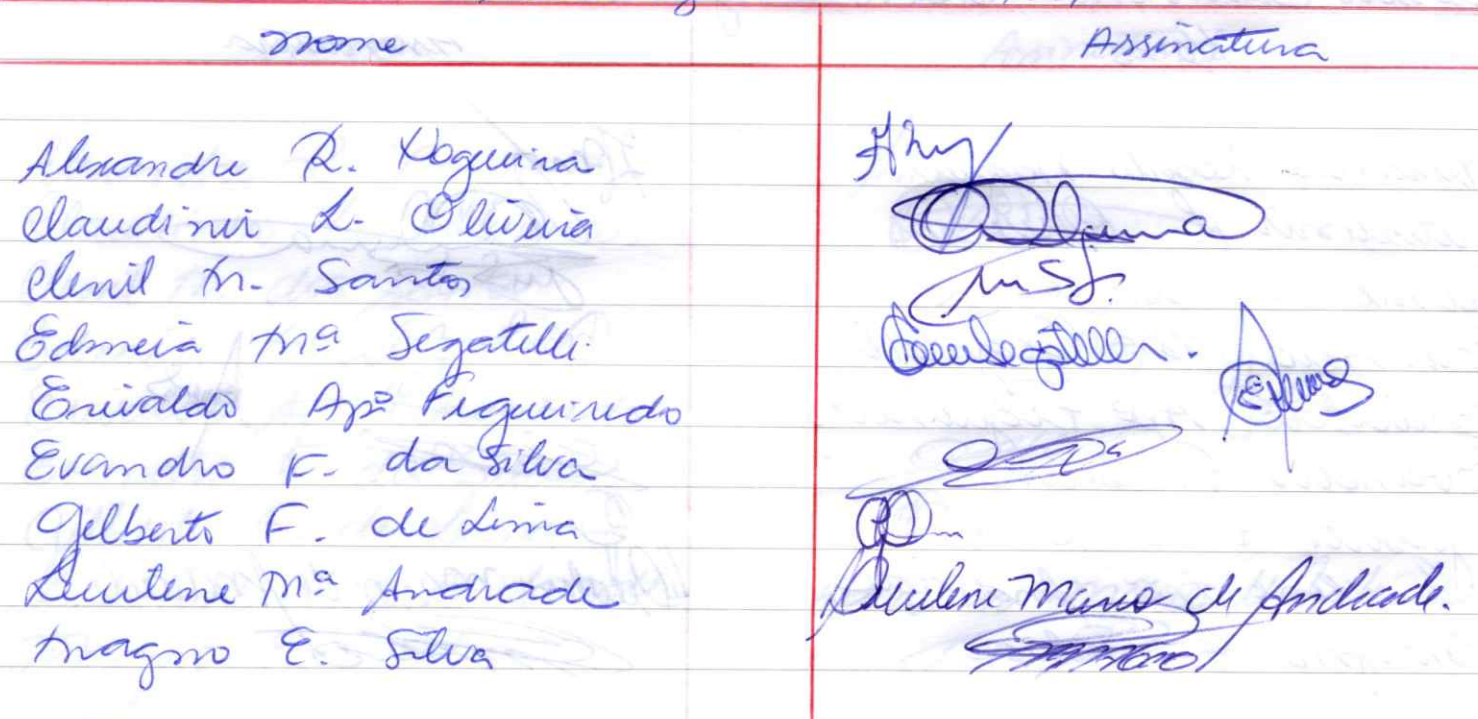 nome Assinatura
Alexandre R. Nogueira
Claudinei L. Oliveira
Clenil M. Santos
Edmeia Mª Segatelli
Erivaldo Apº Figueiredo
Evandro F. da Silva
Gilberto F. de Lima
Lucilene Mª Andrade Lucilene Maria de Andrade.
Magno E. Silva